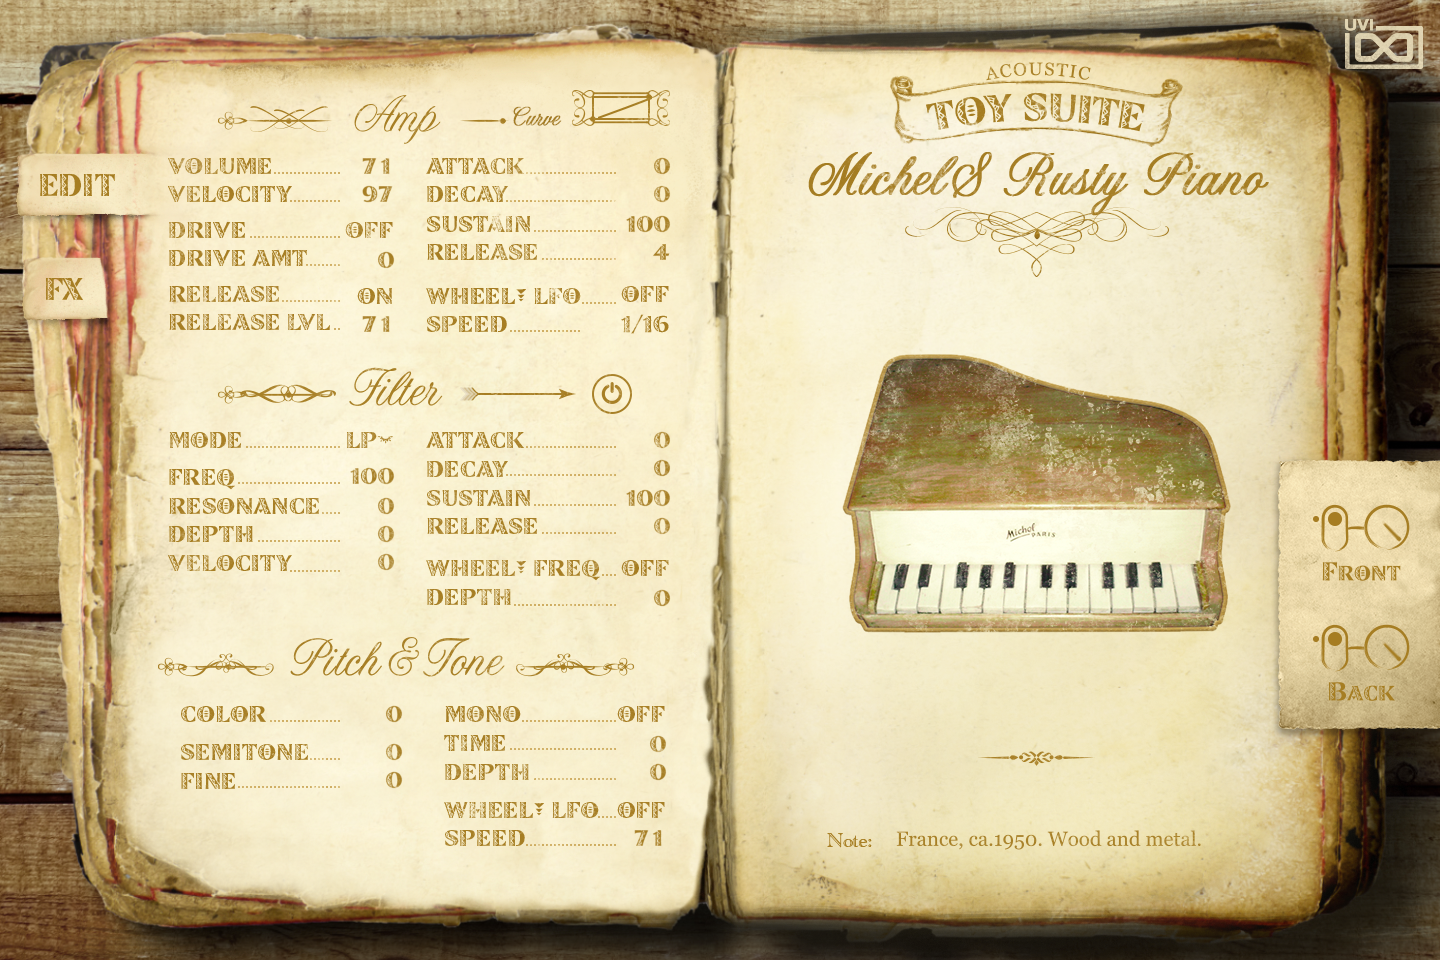 UVI
EDIT
FX
Amp
Curve
VOLUME 71
VELOCITY 97
DRIVE OFF
DRIVE AMT 0
RELEASE ON
RELEASE LVL 71
ATTACK 0
DECAY 0
SUSTAIN 100
RELEASE 4
WHEEL LFO OFF
SPEED 1/16
Filter
MODE LP
FREQ 100
RESONANCE 0
DEPTH 0
VELOCITY 0
ATTACK 0
DECAY 0
SUSTAIN 100
RELEASE 0
WHEEL FREQ OFF
DEPTH 0
Pitch & Tone
COLOR 0
SEMITONE 0
FINE 0
MONO OFF
TIME 0
DEPTH 0
WHEEL LFO OFF
SPEED 71
ACOUSTIC
TOY SUITE
MichelS Rusty Piano
Michel
PARIS
Note: France, ca.1950. Wood and metal.
FRONT
BACK